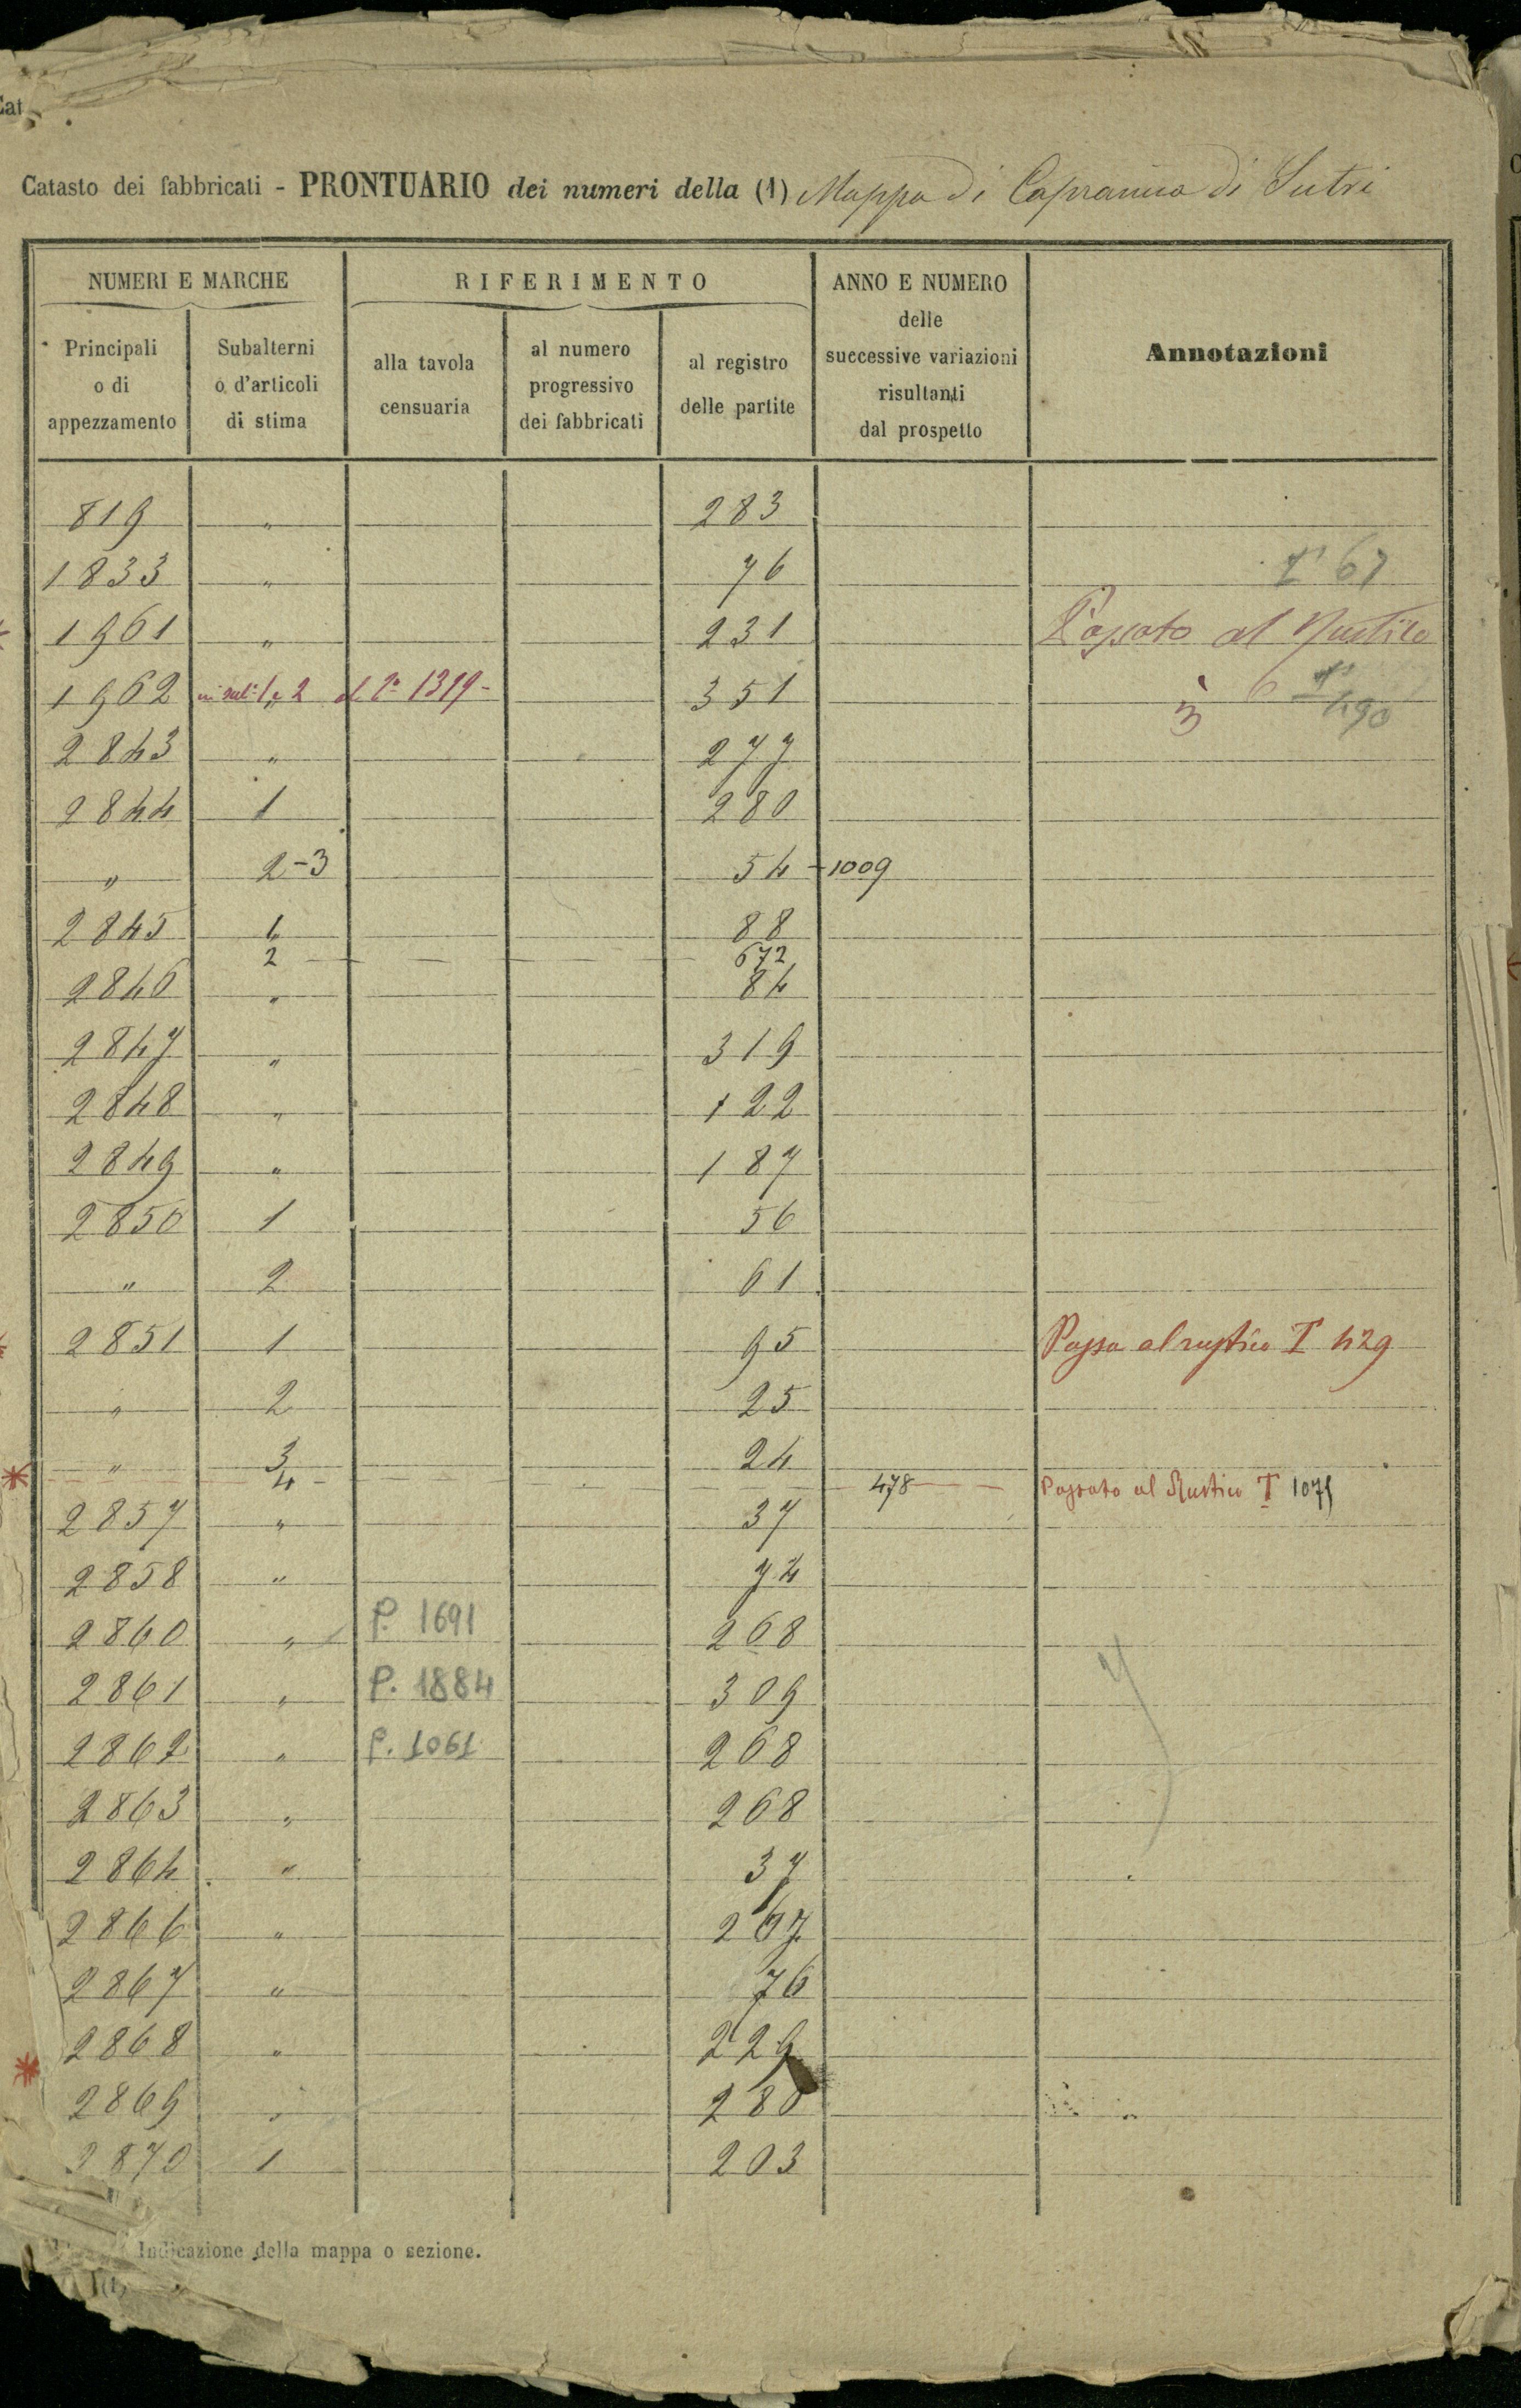 Cat
Catasto dei fabbricati - PRONTUARIO dei numeri della (1) Mappa di Capranica di Sutri
NUMERI E MARCHE
Principali o di appezzamento
Subalterni o d'articoli di stima
RIFERIMENTO
alla tavola censuaria
al numero progressivo dei fabbricati
al registro delle partite
ANNO E NUMERO delle successive variazioni risultanti dal prospetto
Annotazioni
819 " 283
1833 " 76 T 67
1961 " 231 Passato al Rustico
1962 " 1 e 2 1319 - 351 3 6 T 490
2843 " 277
2844 1 280
" 2-3 54 - 1009
2845 1 88
2 672
2846 " 84
2847 " 319
2848 " 122
2849 " 187
2850 1 56
" 2 61
2851 1 95 Passa al rustico T 429
" 2 25
" 3 24
4 - 478 Passato al Rustico T 1075
2857 " 37
2858 " 74
2860 " P. 1691 268
2861 " P. 1884 309
2862 " P. 1061 268
2863 " 268
2864 " 37
2866 " 267
2867 " 76
2868 " 229
2869 " 280
2870 1 203
Indicazione della mappa o sezione.